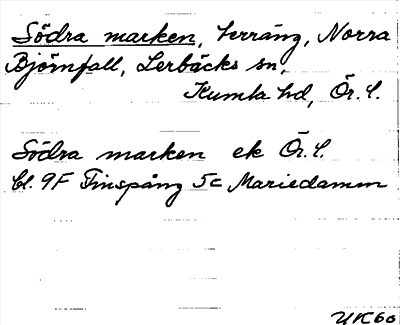 Södra marken, terräng, Norra
Björnfall, Lerbäcks sn,
Kumla hd, Ör. l.
Södra marken ek Ör. l.
bl. 9F Finspång 5c Mariedamm
UK60